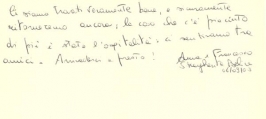 Ci siamo trovati veramente bene, e sicuramente
ritorneremo ancora; la cosa che c'è piaciuta
di più è stata l'ospitalità: ci sentiamo tra
amici. A presto!
Anna e Francesco